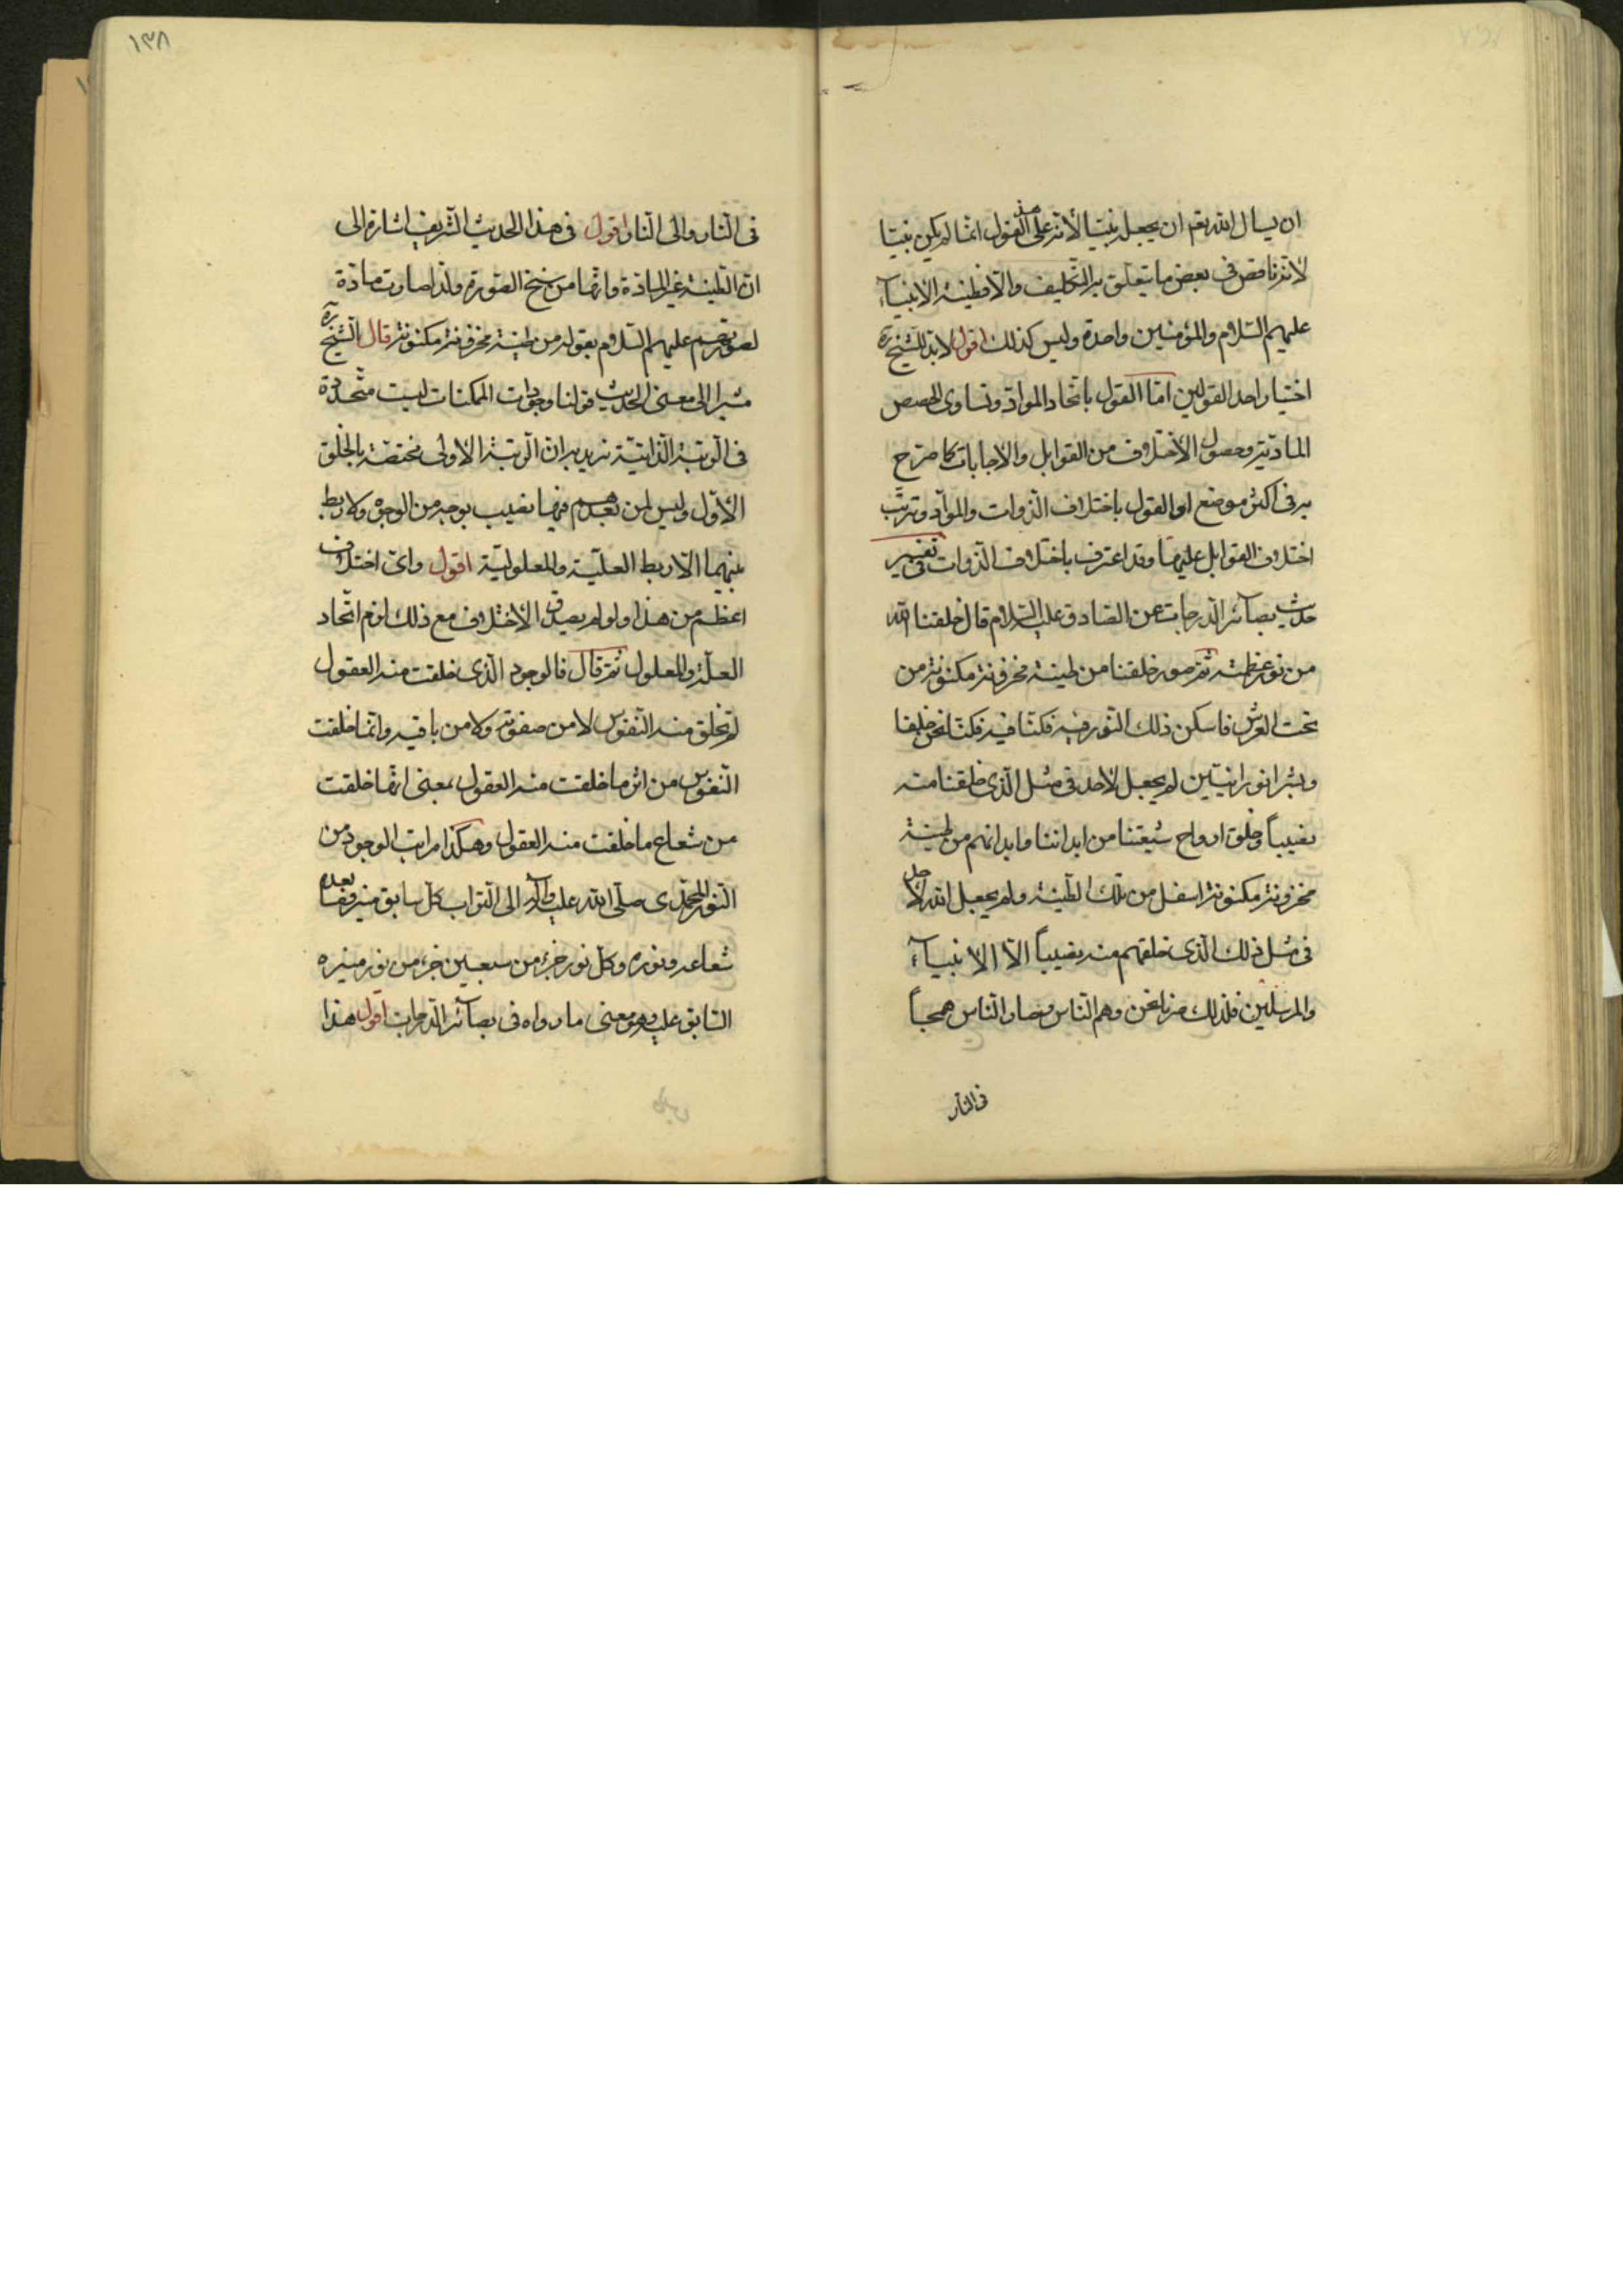 ان يسال الله تعم ان يجعله نبيّا لأنه على هذا القول انما لم يكن نبيّا
لانه ناقص فى بعض ما يتعلّق به التّكليف والّا فطينة الانبيآء
عليهم السّلام والمؤمنين واحدة وليس كذلك اقول لا بدّ للشّيخ ره
اختيار احد القولين امّا القول باتّحاد الموادّ وتساوى الحصص
المادّيّة وحصول الأختلاف من القوابل والأجابات كما صرّح
به فى اكثر موضع او القول باختلاف الذّوات والموآدّ وترتّب
اختلاف القوابل عليهما وقد اعترف باختلاف الذّوات فى تفسير
حديث بصآئر الدّرجات عن الصّادق عليه السّلام قال خلقنا الله
من نور عظمته ثمّ صوّر خلقنا من طينة مخزونة مكنونة من
تحت العرش فاسكن ذلك النّور فيه فكنّا فيه فكنّا نحن خلقا
وبشرا نورانيّين لم يجعل لأحد فى مثل الّذى خلقنا منه
نصيباً وخلق ارواح شيعتنا من ابداننا وابدانهم من طينة
مخزونة مكنونة اسفل من تلك الطّينة ولم يجعل الله لأحد
فى مثل ذلك الّذى خلقهم منه نصيباً الّا الانبيآء
والمرسلين فلذلك صرنا نحن وهم النّاس وصار النّاس همجاً
فى النّار
١٣٨
فى النّار والى النّار اقول فى هذا الحديث الشّريف اشارة الى
انّ الطّينة غير المادّة وانّها من سنخ الصّورة ولذا صارت مادّة
لصورتهم عليهم السّلام بقوله من طينة مخزونة مكنونة قال الشّيخ ره
مشيرا الى معنى الحديث قولنا وجودات الممكنات ليست متّحدة
فى الرّتبة الذّاتيّة نريد به انّ الرّتبة الاولى مختصّة بالخلق
الأوّل وليس لمن بعدهم فيها نصيب بوجه من الوجوه ولا ربط
بينهما الّا ربط العلّية والمعلوليّة اقول واىّ اختلاف
اعظم من هذا ولو لم يصدق الأختلاف مع ذلك لزم اتّحاد
العلّة والمعلول ثمّ قال فالوجود الّذى خلقت منه العقول
لم تخلق منه النّفوس لا من صفوته ولا من باقيه وانّما خلقت
النّفوس من اثر ما خلقت منه العقول بمعنى انّها خلقت
من شعاع ما خلقت منه العقول وهكذا مراتب الوجود من
النّور المحمّدى صلّى الله عليه وآله الى التّراب كلّ سابق منير وما بعده
شعاعه ونوره وكلّ نور جزء من سبعين جزء من نور منيره
السّابق عليه وهو معنى ما رواه فى بصآئر الدّرجات اقول هذا